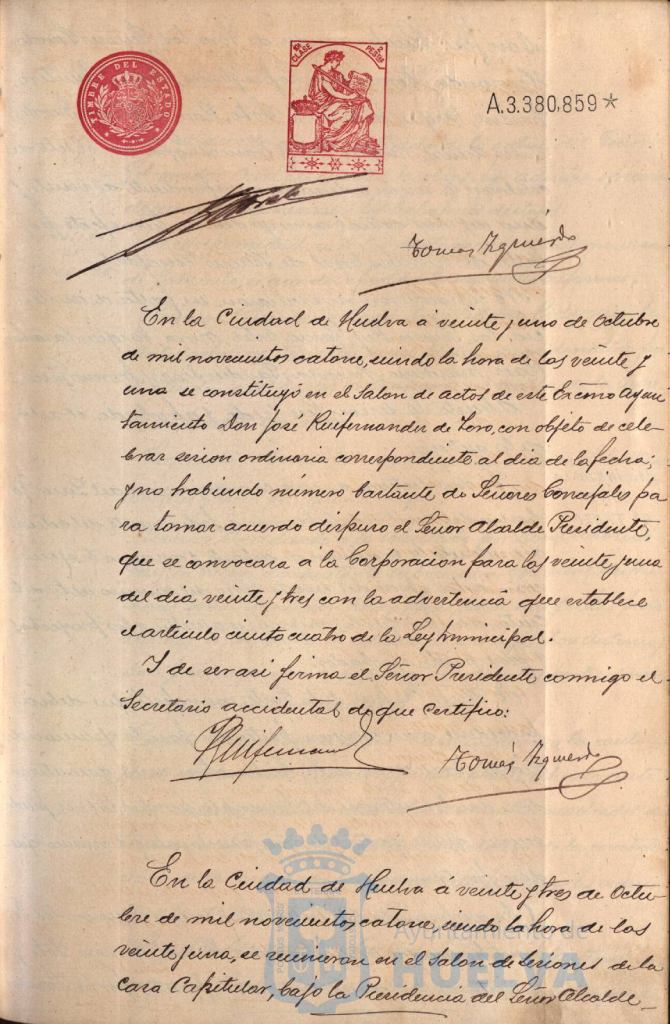 TIMBRE DEL ESTADO
CLASE 2 PESTAS
A.3.380,859*
Tomás Izquierdo
En la Ciudad de Huelva á veinte y uno de Octubre
de mil novecientos catorce, siendo la hora de las veinte y
una se constituyó en el Salon de actos de este Excmo Ayun
tamiento Don José Ruifernandez de Toro, con objeto de cele-
brar sesion ordinaria correspondiente al dia de la fecha;
y no habiendo número bastante de Señores Concejales pa
ra tomar acuerdo dispuso el Señor Alcalde Presidente,
que se convocara á la Corporacion para las veinte y una
del dia veinte y tres con la advertencia que establece
el articulo ciento cuatro de la Ley Municipal.
Y de ser asi firma el Señor Presidente conmigo el
Secretario accidental de que certifico:
Ruifernandez
Tomás Izquierdo
En la Ciudad de Huelva á veinte y tres de Octu
bre de mil novecientos catorce, siendo la hora de las
veinte y una, se reunieron en el Salon de Sesiones de la
Casa Capitular, bajo la Presidencia del Señor Alcalde-
Ayuntamiento de
HUELVA